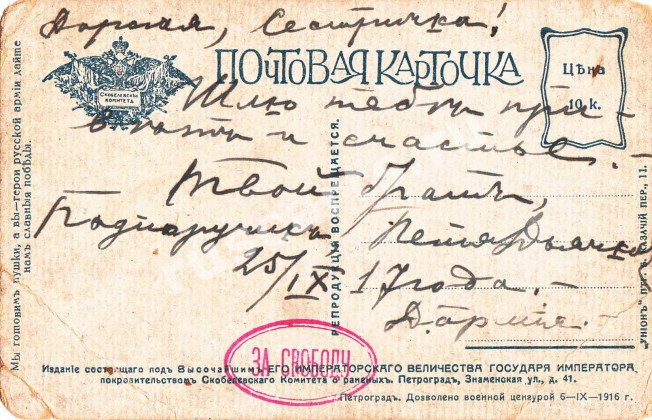 Дорогая, Сестричка!
ПОЧТОВАЯ КАРТОЧКА
СКОБЕЛЕВСКІЙ
КОМИТЕТЪ
Цѣна
10 к.
Шлю тебѣ при-
вѣтъ и счастье. –
Твой братъ,
Подпоручикъ Петя Дьячков
25/IX 17 года. –
Д. армия. –
Мы готовимъ пушки, а вы-герои русской арміи дайте
намъ славныя побѣды.
РЕПРОДУКЦІЯ ВОСПРЕЩАЕТСЯ.
"УНІОНЪ" ПТГ. КАЗАЧІЙ ПЕР., 11.
ЗА СВОБОДУ
Изданіе состоящаго подъ Высочайшимъ ЕГО ИМПЕРАТОРСКАГО ВЕЛИЧЕСТВА ГОСУДАРЯ ИМПЕРАТОРА
покровительствомъ Скобелевскаго Комитета о раненыхъ. Петроградъ, Знаменская ул., д. 41.
Петроградъ. Дозволено военной цензурой 6—IX—1916 г.